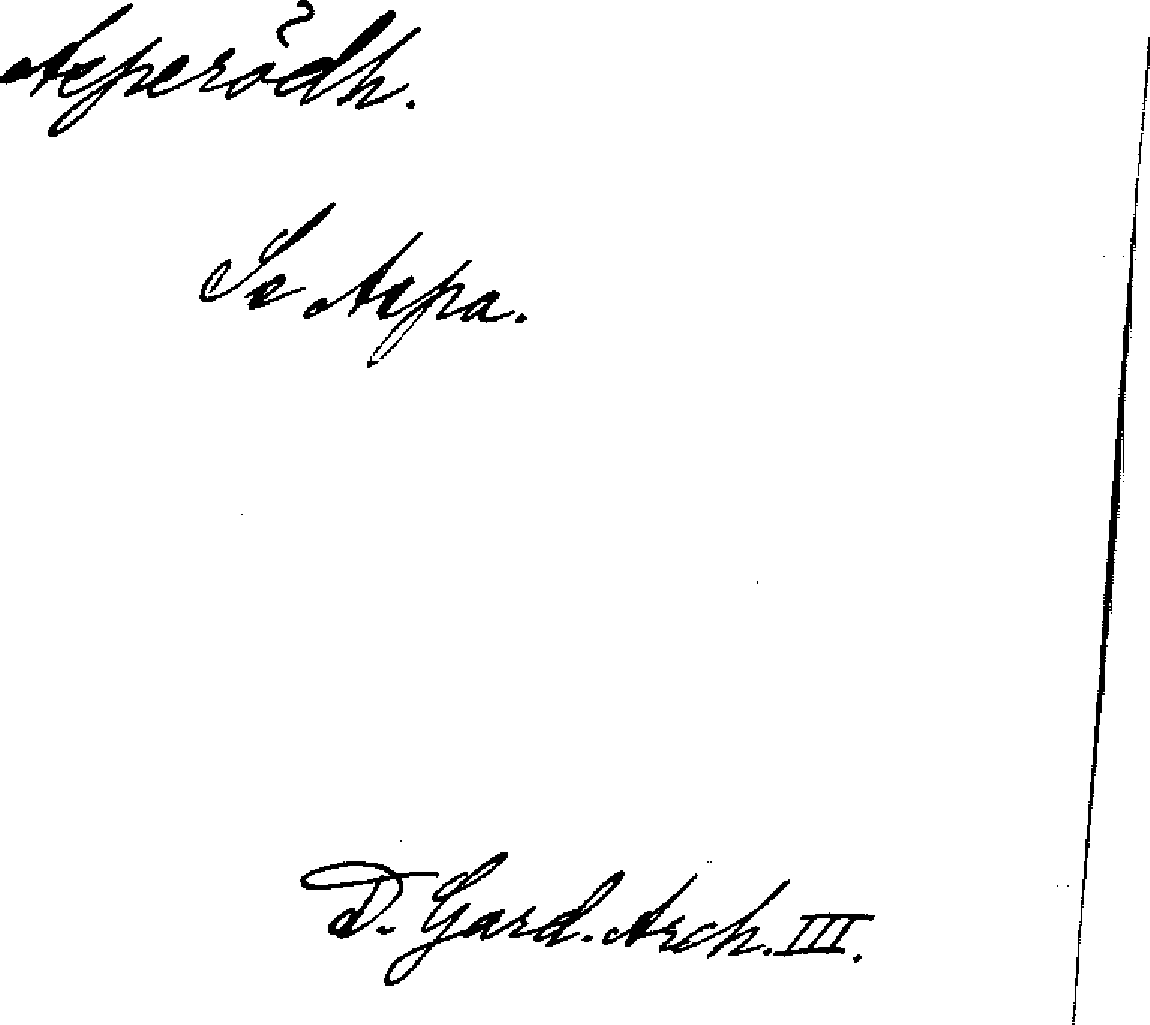 Aeperödh.
Se Aepa.
D. Gard. Arch. III.